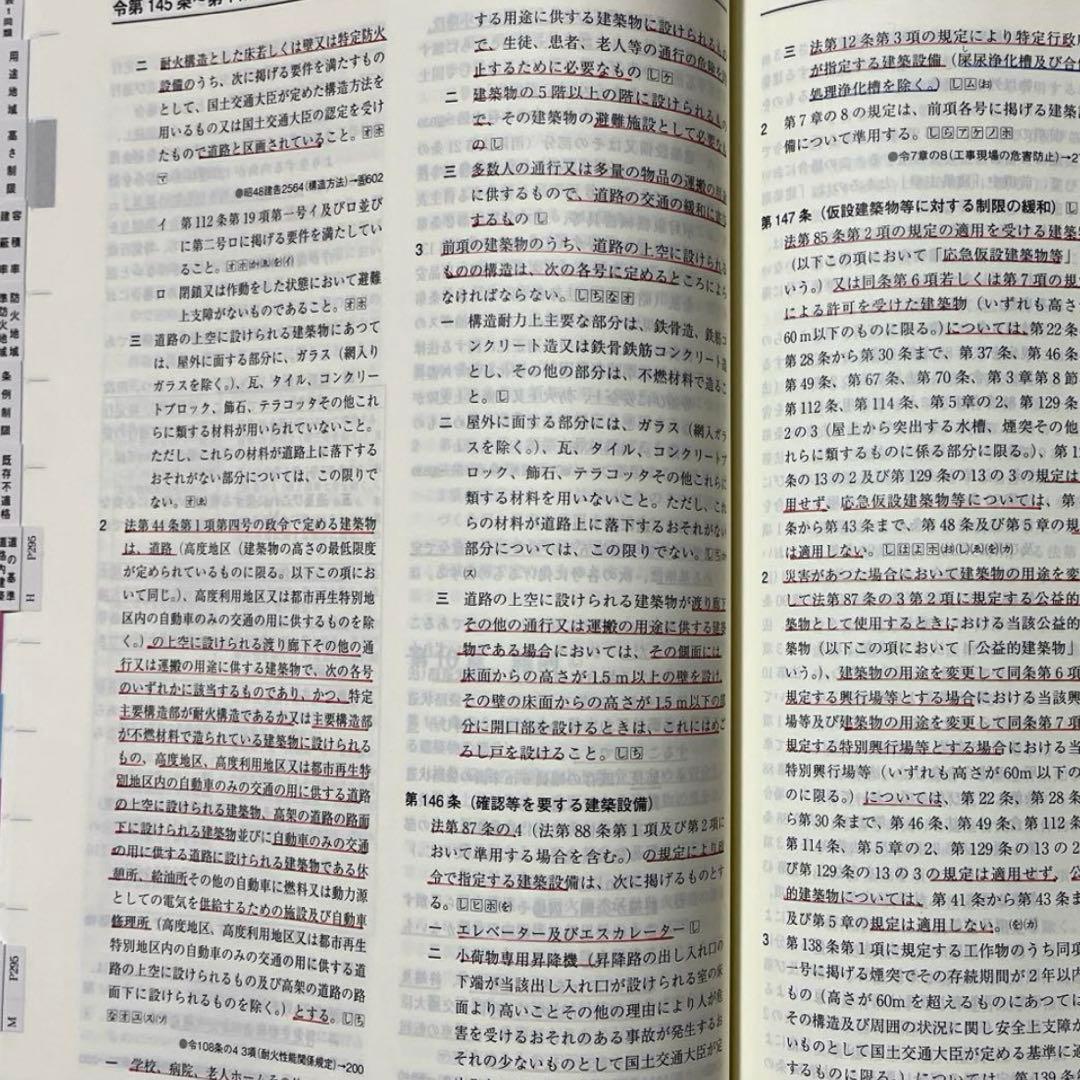 令第145条~第1
二 耐火構造とした床若しくは壁又は特定防火
設備のうち、次に掲げる要件を満たすもの
として、国土交通大臣が定めた構造方法を
用いるもの又は国土交通大臣の認定を受け
たもので道路と区画されていること。
●昭48建告2564(構造方法)→告602
イ 第112条第19項第一号イ及びロ並び
に第二号ロに掲げる要件を満たしてい
ること。
ロ 閉鎖又は作動をした状態において避難
上支障がないものであること。
三 道路の上空に設けられる建築物にあつて
は、屋外に面する部分に、ガラス(網入り
ガラスを除く。)、瓦、タイル、コンクリー
トブロック、飾石、テラコッタその他これ
らに類する材料が用いられていないこと。
ただし、これらの材料が道路上に落下する
おそれがない部分については、この限りで
ない。
2 法第44条第1項第四号の政令で定める建築物
は、道路(高度地区(建築物の高さの最低限度
が定められているものに限る。以下この項にお
いて同じ。)、高度利用地区又は都市再生特別地
区内の自動車のみの交通の用に供するものを除
く。)の上空に設けられる渡り廊下その他の通
行又は運搬の用途に供する建築物で、次の各号
のいずれかに該当するものであり、かつ、特定
主要構造部が耐火構造であるか又は主要構造部
が不燃材料で造られている建築物に設けられる
もの、高度地区、高度利用地区又は都市再生特
別地区内の自動車のみの交通の用に供する道路
の上空に設けられる建築物、高架の道路の路面
下に設けられる建築物並びに自動車のみの交通
の用に供する道路に設けられる建築物である休
憩所、給油所その他の自動車に燃料又は動力源
としての電気を供給するための施設及び自動車
修理所(高度地区、高度利用地区又は都市再生
特別地区内の自動車のみの交通の用に供する道
路の上空に設けられるもの及び高架の道路の路
面下に設けられるものを除く。)とする。
●令108条の4 3項(耐火性能関係規定)→200
一 学校、病院、老人ホームその
する用途に供する建築物に設けられるもの
で、生徒、患者、老人等の通行の危険を防
止するために必要なもの
二 建築物の5階以上の階に設けられるもの
で、その建築物の避難施設として必要なも
の
三 多数人の通行又は多量の物品の運搬の用途
に供するもので、道路の交通の緩和に寄与
するもの
3 前項の建築物のうち、道路の上空に設けられる
ものの構造は、次の各号に定めるところによら
なければならない。
一 構造耐力上主要な部分は、鉄骨造、鉄筋
ンクリート造又は鉄骨鉄筋コンクリート造
とし、その他の部分は、不燃材料で造るこ
と。
二 屋外に面する部分には、ガラス(網入ガラ
スを除く。)、瓦、タイル、コンクリートブ
ロック、飾石、テラコッタその他これらに
類する材料を用いないこと。ただし、これ
らの材料が道路上に落下するおそれがない
部分については、この限りでない。
三 道路の上空に設けられる建築物が渡り廊下
その他の通行又は運搬の用途に供する建築
物である場合においては、その側面には
床面からの高さが1.5m以上の壁を設け、
その壁の床面からの高さが1.5m以下の部
分に開口部を設けるときは、これにはめご
ろし戸を設けること。
第146条(確認等を要する建築設備)
法第87条の4(法第88条第1項及び第2項に
おいて準用する場合を含む。)の規定により政
令で指定する建築設備は、次に掲げるものとす
る。
一 エレベーター及びエスカレーター
二 小荷物専用昇降機(昇降路の出し入れ口の
下端が当該出し入れ口が設けられる室の床
面より高いことその他の理由により人が危
害を受けるおそれのある事故が発生するお
それの少ないものとして国土交通大臣が定
三 法第12条第3項の規定により特定行政
が指定する建築設備(屎尿浄化槽及び合
処理浄化槽を除く。)
2 第7章の8の規定は、前項各号に掲げる建築
備について準用する。
●令7章の8(工事現場の危害防止)→2
第147条(仮設建築物等に対する制限の緩和)
法第85条第2項の規定の適用を受ける建築
(以下この項において「応急仮設建築物等」
いう。)又は同条第6項若しくは第7項の規
による許可を受けた建築物(いずれも高さ
60m以下のものに限る。)については、第22条
第28条から第30条まで、第37条、第46条
第49条、第67条、第70条、第3章第8節
第112条、第114条、第5章の2、第129条
2の3(屋上から突出する水槽、煙突その他
れらに類するものに係る部分に限る。)、第1
条の13の2及び第129条の13の3の規定は
用せず、応急仮設建築物等については、第
条から第43条まで、第48条及び第5章の規
は適用しない。
2 災害があつた場合において建築物の用途を変
して法第87条の3第2項に規定する公益的
築物として使用するときにおける当該公益的
築物(以下この項において「公益的建築物」
いう。)、建築物の用途を変更して同条第6項
規定する興行場等とする場合における当該興
場等及び建築物の用途を変更して同条第7項
規定する特別興行場等とする場合における当
特別興行場等(いずれも高さが60m以下の
のに限る。)については、第22条、第28条
ら第30条まで、第46条、第49条、第112条
第114条、第5章の2、第129条の13の2
び第129条の13の3の規定は適用せず、公
的建築物については、第41条から第43条ま
及び第5章の規定は適用しない。
3 第138条第1項に規定する工作物のうち同項
一号に掲げる煙突でその存続期間が2年以内
もの(高さが60mを超えるものにあつては
その構造及び周囲の状況に関し安全上支障が
いものとして国土交通大臣が定める基準に適
するものに限る。)については、第139条
用途地域
高さ制限
準防火地域
防火地域
条例制限
既存不適格
P295
H
P295
M